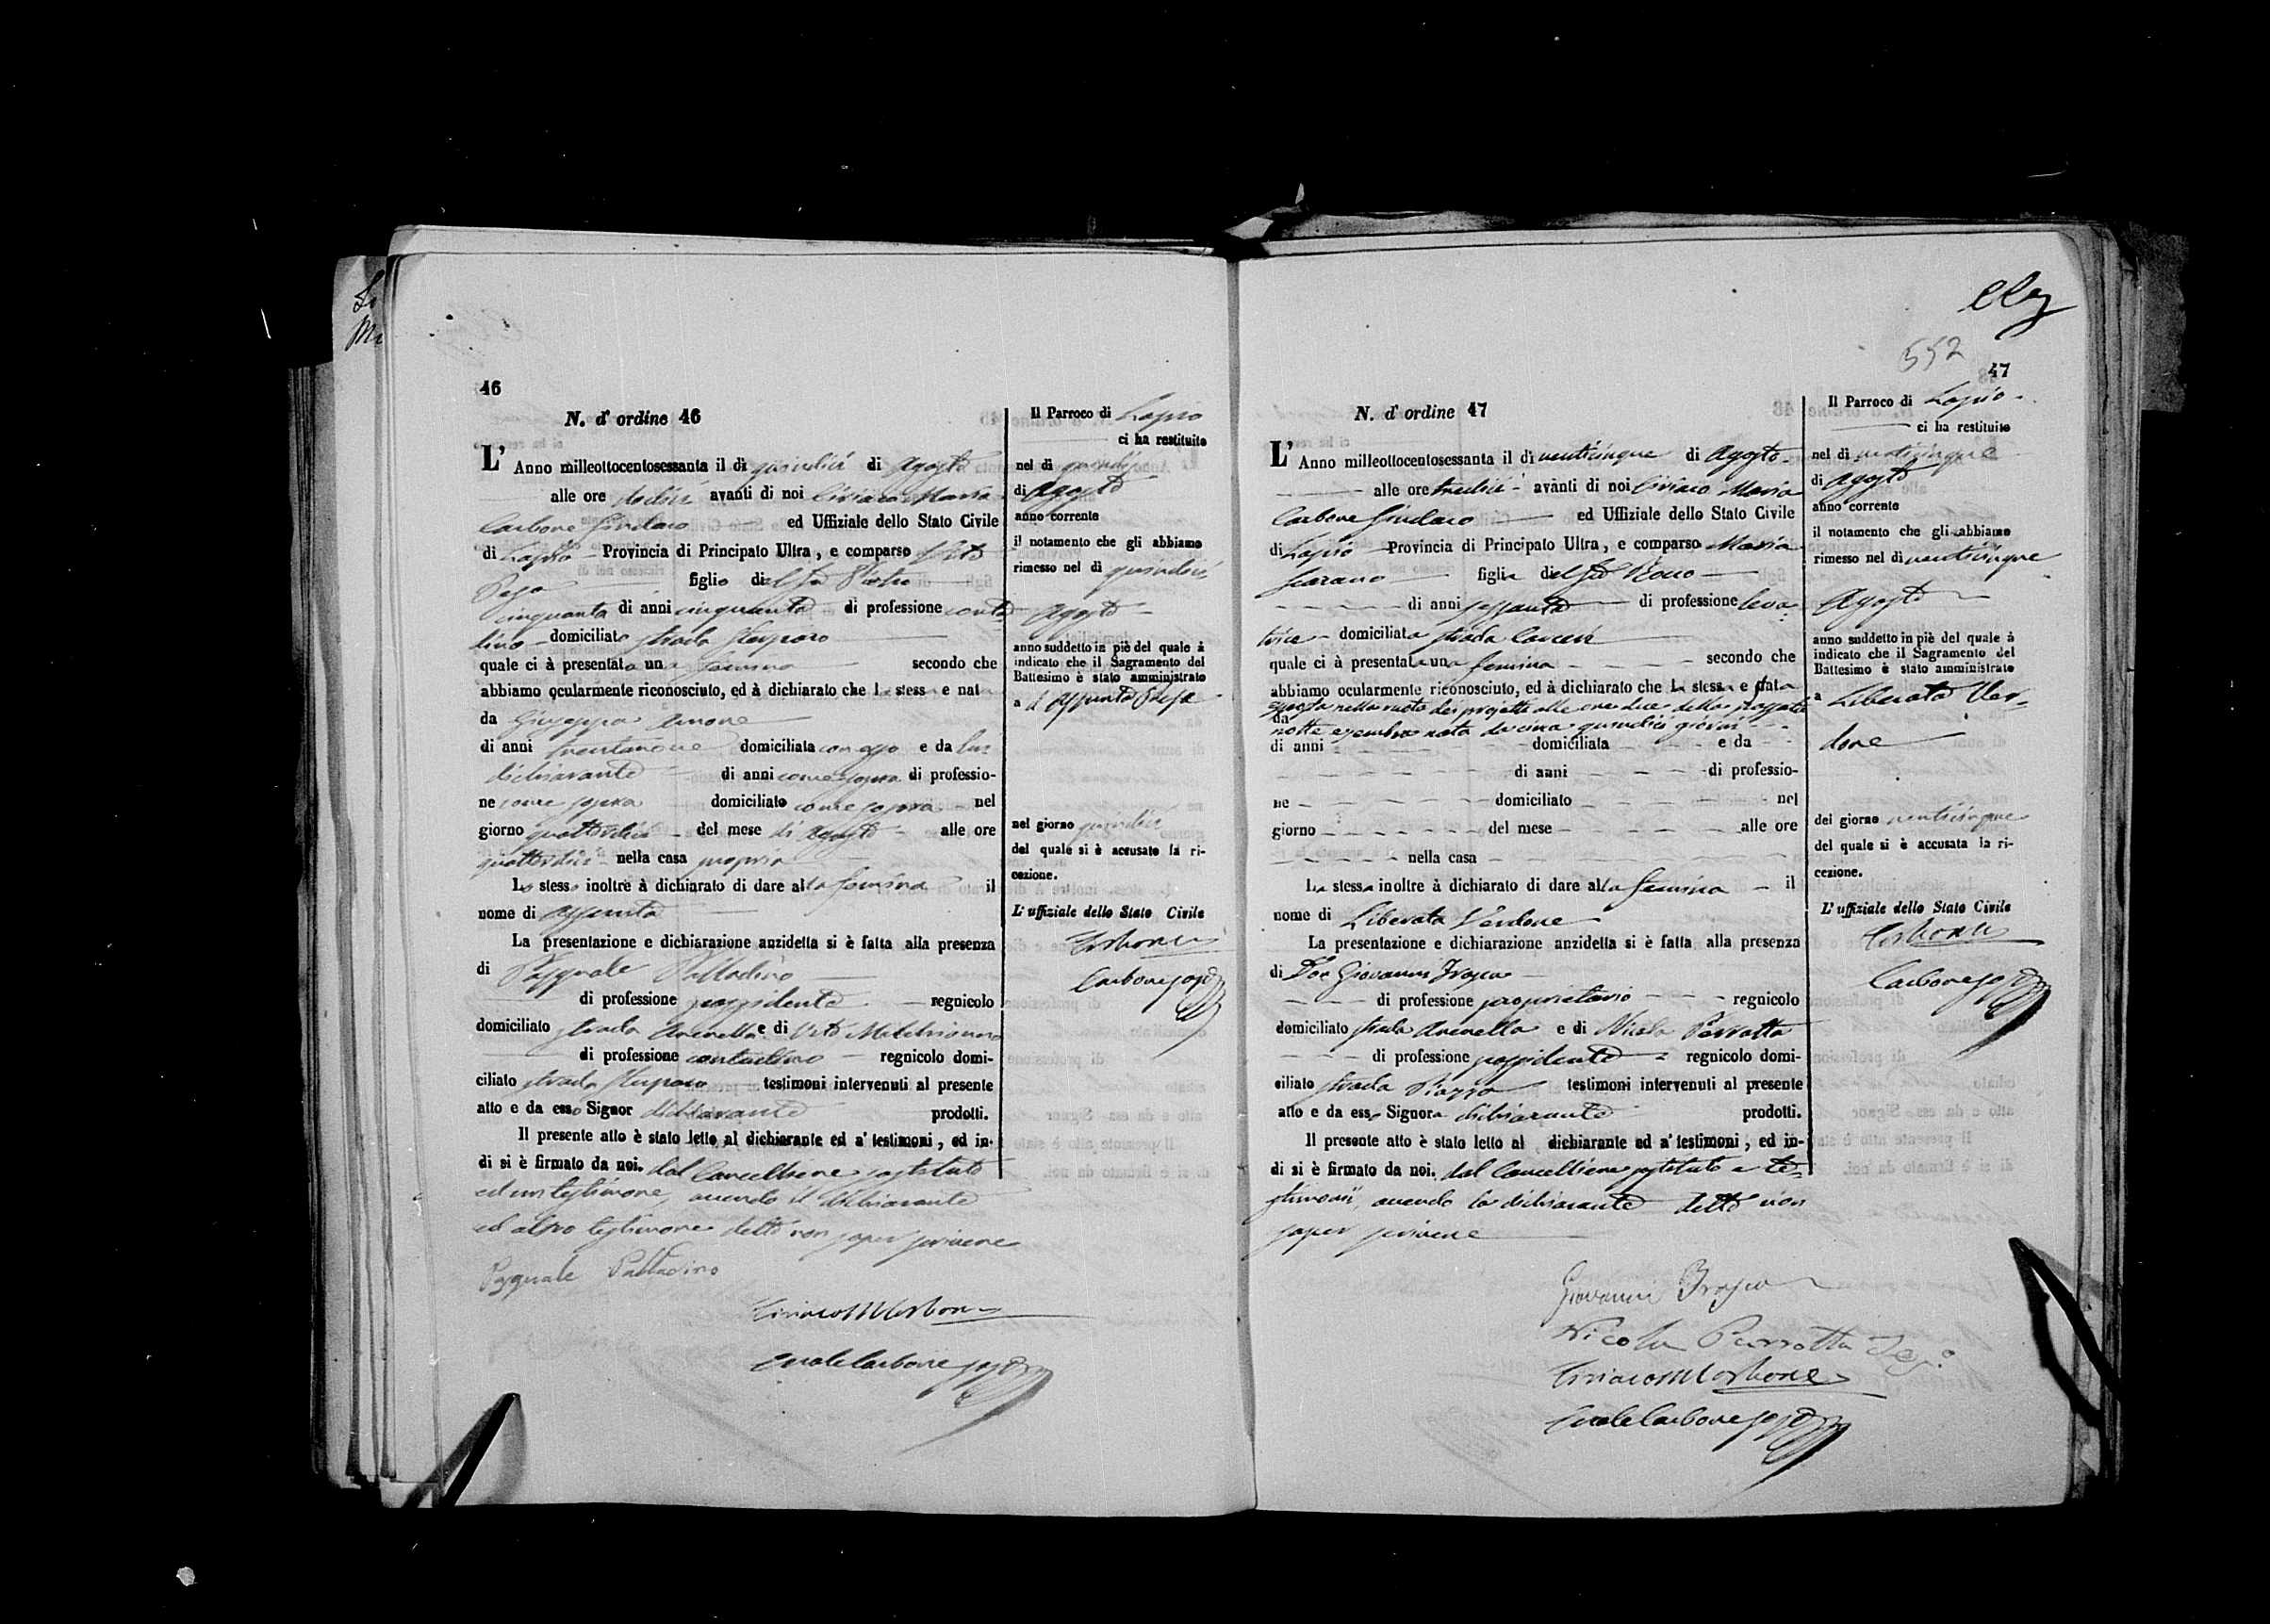 46
N. d' ordine 46
L' Anno milleottocentosessanta il dì quindici di Agosto
alle ore dodici avanti di noi Ciriaco Maria
Carbone Sindaco ed Uffiziale dello Stato Civile
di Lapio Provincia di Principato Ultra, e comparso Vito
figlio del fu Pietro
cinquanta di anni cinquanta di professione conta
dino domiciliato strada
quale ci à presentata una femina secondo che
abbiamo ocularmente riconosciuto, ed à dichiarato che la stessa e nata
da Giuseppa
di anni trentanove domiciliata con esso e da lui
dichiarante di anni come sopra di professio-
ne come sopra domiciliato come sopra nel
giorno quattordici del mese di Agosto alle ore
quattordici nella casa propria
Lo stesso inoltre à dichiarato di dare alla femina il
nome di Assunta
La presentazione e dichiarazione anzidetta si è fatta alla presenza
di Pasquale Palladino
di professione possidente regnicolo
domiciliato strada Arenella e di Vito
di professione contadino regnicolo domi-
ciliato strada testimoni intervenuti al presente
atto e da esso Signor dichiarante prodotti.
Il presente atto è stato letto al dichiarante ed a' testimoni, ed in-
di si è firmato da noi, dal Cancelliere sostituto
ed un testimone, avendo il dichiarante
ed altro testimone detto non saper scrivere
Pasquale Palladino
Il Parroco di Lapio
ci ha restituito
nel dì quindici
di Agosto
anno corrente
il notamento che gli abbiamo
rimesso nel dì quindici
Agosto
anno suddetto in piè del quale à
indicato che il Sagramento del
Battesimo è stato amministrato
a Assunta
nel giorno quindici
del quale si è accusata la ri-
cezione.
L'uffiziale dello Stato Civile
Carbone
552
47
N. d' ordine 47
L' Anno milleottocentosessanta il dì venticinque di Agosto
alle ore tredici avanti di noi Ciriaco Maria
Carbone Sindaco ed Uffiziale dello Stato Civile
di Lapio Provincia di Principato Ultra, e comparso Maria
Scarano figlia del fu Rocco
di anni sessanta di professione leva
trice domiciliata strada Carceri
quale ci à presentata una femina secondo che
abbiamo ocularmente riconosciuto, ed à dichiarato che la stessa e stata
esposta nella ruota dei projetti alle ore due della passata
da
notte e sembra nata da circa quindici giorni
di anni domiciliata e da
di anni di professio-
ne domiciliato nel
giorno del mese alle ore
nella casa
La stessa inoltre à dichiarato di dare alla femina il
nome di Liberata Verdone
La presentazione e dichiarazione anzidetta si è fatta alla presenza
di Don Giovanni
di professione proprietario regnicolo
domiciliato strada Arenella e di Nicola Perrotta
di professione possidente regnicolo domi-
ciliato strada Piazza testimoni intervenuti al presente
atto e da essa Signora dichiarante prodotti.
Il presente atto è stato letto al dichiarante ed a' testimoni, ed in-
di si è firmato da noi, dal Cancelliere sostituto e te-
stimonii, avendo la dichiarante detto non
saper scrivere
Giovanni
Nicola Perrotta
Il Parroco di Lapio
ci ha restituito
nel dì venticinque
di Agosto
anno corrente
il notamento che gli abbiamo
rimesso nel dì venticinque
Agosto
anno suddetto in piè del quale à
indicato che il Sagramento del
Battesimo è stato amministrato
a Liberata Ver-
done
del giorno venticinque
del quale si è accusata la ri-
cezione.
L'uffiziale dello Stato Civile
Carbone